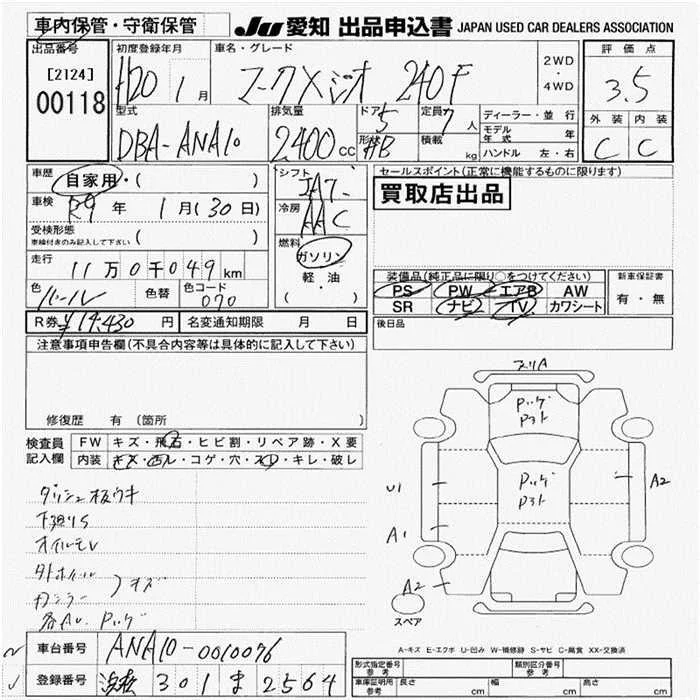 車内保管・守衛保管
JU 愛知 出品申込書 JAPAN USED CAR DEALERS ASSOCIATION
出品番号
[2124]
00118
初度登録年月
H20 1 月
車名・グレード
マークXジオ 240F
2WD
・
4WD
評価点
3.5
型式
DBA-ANA10
排気量
2400 cc
ドア 5
形状 HB
定員 7 人
積載 kg
ディーラー・並行
モデル年式 年
ハンドル 左・右
外装 内装
C C
車歴 自家用・( )
車検 R9 年 1 月(30 日)
受検形態
車検付きのみ記入して下さい ( )
走行 11 万 0 千 049 km
色 パール 色替 色コード 070
R券 ¥14,430 円 名変通知期限 月 日
シフト
冷房
AAC
燃料
ガソリン
軽・油
( ・ )
セールスポイント(正常に機能するものに限ります)
買取店出品
装備品(純正品に限り〇をつけてください)
PS PW エアB AW
SR ナビ TV カワシート
新車保証書
有・無
後日品
注意事項申告欄(不具合内容等は具体的に記入して下さい)
修復歴 有 (箇所 )
検査員記入欄
FW キズ・飛石・ヒビ割・リペア跡・X要
内装 キズ・凹ル・コゲ・穴・スレ・キレ・破レ
オイルモレ
外ホイール
キズ
スリA
U1
A1
A2
A2
スペア
A-キズ E-エクボ U-凹み W-補修跡 S-サビ C-腐食 XX-交換済
車台番号 ANA10-0010076
登録番号 浜松 301 ま 2564
形式指定番号 参考
類別区分番号 参考
車庫証明用 参考
長さ cm 幅 cm 高さ cm